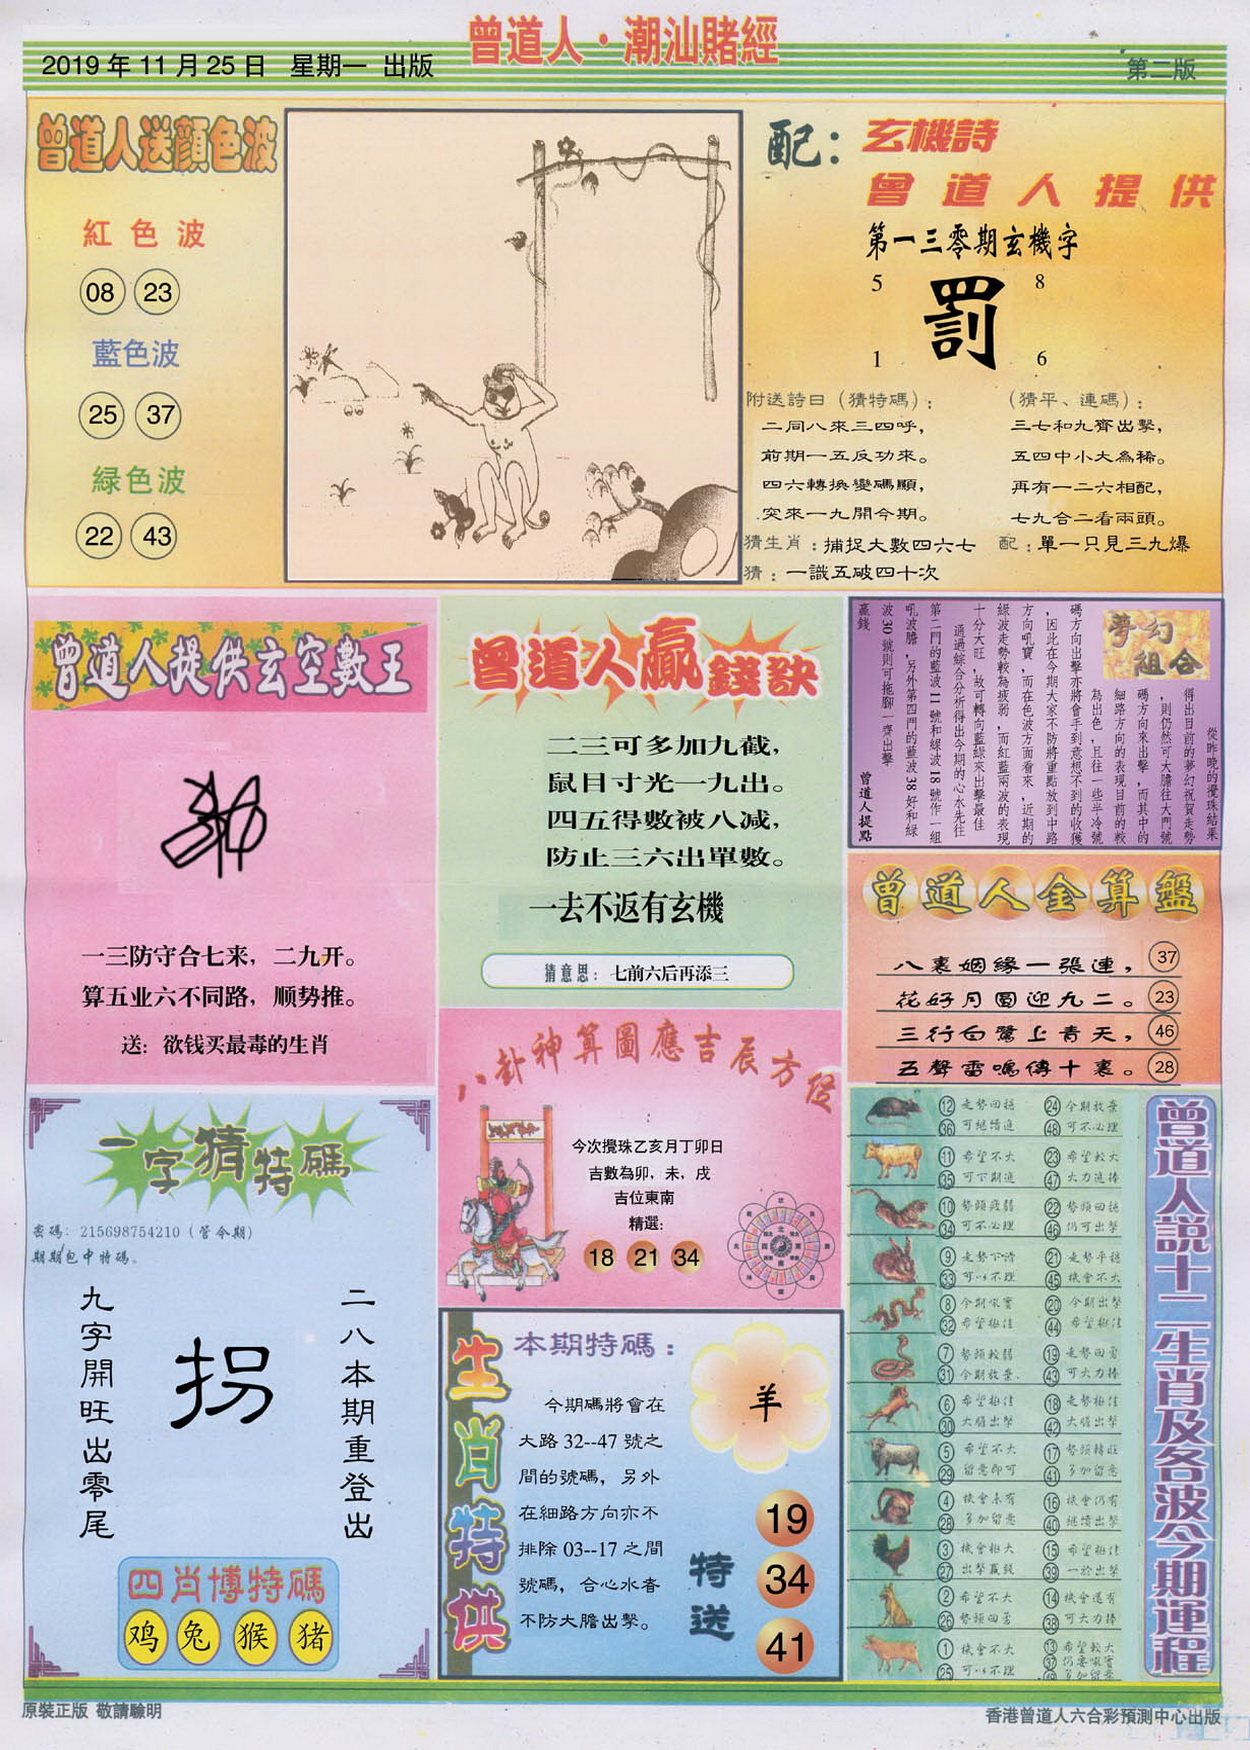 曾道人·潮汕賭經
2019年11月25日 星期一 出版
第二版
曾道人送顏色波
紅色波
08 23
藍色波
25 37
緑色波
22 43
配：玄機詩
曾道人提供
第一三零期玄機字
5 8
罰
1 6
附送詩曰（猜特碼）：
二同八來三四呼，
前期一五反功來。
四六轉換變碼顯，
突來一九開今期。
（猜平、連碼）：
三七和九齊出擊，
五四中小大為稀。
再有一二六相配，
七九合二看兩頭。
猜生肖：捕捉大數四六七
配：單一只見三九爆
猜：一識五破四十次
曾道人提供玄空數王
一三防守合七来，二九开。
算五业六不同路，顺势推。
送：欲钱买最毒的生肖
曾道人贏錢訣
二三可多加九截，
鼠目寸光一九出。
四五得數被八减，
防止三六出單數。
一去不返有玄機
猜意思：七前六后再添三
夢幻
組合
從昨晚的攪珠結果
得出目前的夢幻祝賀走勢
，則仍然可大膽往大門號
碼方向來出擊，而其中的
細路方向的表現目前的較
為出色，且往一些半冷號
碼方向出擊亦將會手到意想不到的收獲
，因此在今期大家不防將重點放到中路
方向吼寶，而在色波方面看來，近期的
綠波走勢較為疲弱，而紅藍兩波的表現
十分大旺，故可轉向藍綠來出擊最佳
通過綜合分析得出今期的心水先往
第二門的藍波11號和綠波18號作一組
吼波膽，另外第四門的藍波38好和綠
波30號則可拖腳一齊出擊
贏錢
曾道人提點
曾道人金算盤
八裏姻緣一張連， 37
花好月圓迎九二。 23
三行白鷺上青天， 46
五聲雷鳴傳十裏。 28
一字猜特碼
密碼：215698754210（管令期）
期期包中特碼。
二八本期重登出
拐
九字開旺出零尾
四肖博特碼
鸡 兔 猴 猪
八卦神算圖應吉辰方位
今次攪珠乙亥月丁卯日
吉數為卯，未，戌
吉位東南
精選：
18 21 34
生肖特供
本期特碼：
羊
今期碼將會在
大路32--47號之
間的號碼，另外
在細路方向亦不
排除03--17之間
號碼，合心水者
不防大膽出擊。
特送
19
34
41
曾道人説十二生肖及各波今期運程
12 走勢回穩 24 今期放棄
36 可繼續追 48 可不必理
11 希望不大 23 希望較大
35 可下期追 47 大力追捧
10 勢頭疲弱 22 勢頭回穩
34 可不必理 46 仍可出擊
9 走勢下滑 21 走勢平穩
33 可以不理 45 機會不大
8 今期吼寶 20 今期出擊
32 希望極佳 44 希望極佳
7 勢頭較弱 19 走勢回勇
31 今期放棄 43 可大力捧
6 希望極佳 18 走勢極佳
30 大膽出擊 42 大膽出擊
5 希望不大 17 勢頭轉旺
29 留意即可 41 多加留意
4 機會未有 16 機會仍有
28 多加留意 40 繼續出擊
3 機會極大 15 希望極佳
27 出擊贏錢 39 一於出擊
2 希望不大 14 機會還有
26 勢頭回落 38 可大力捧
1 機會不大 13 希望較大
25 可以不理 37 仍要吼寶
49 多加留意
原裝正版 敬請驗明
香港曾道人六合彩預測中心出版